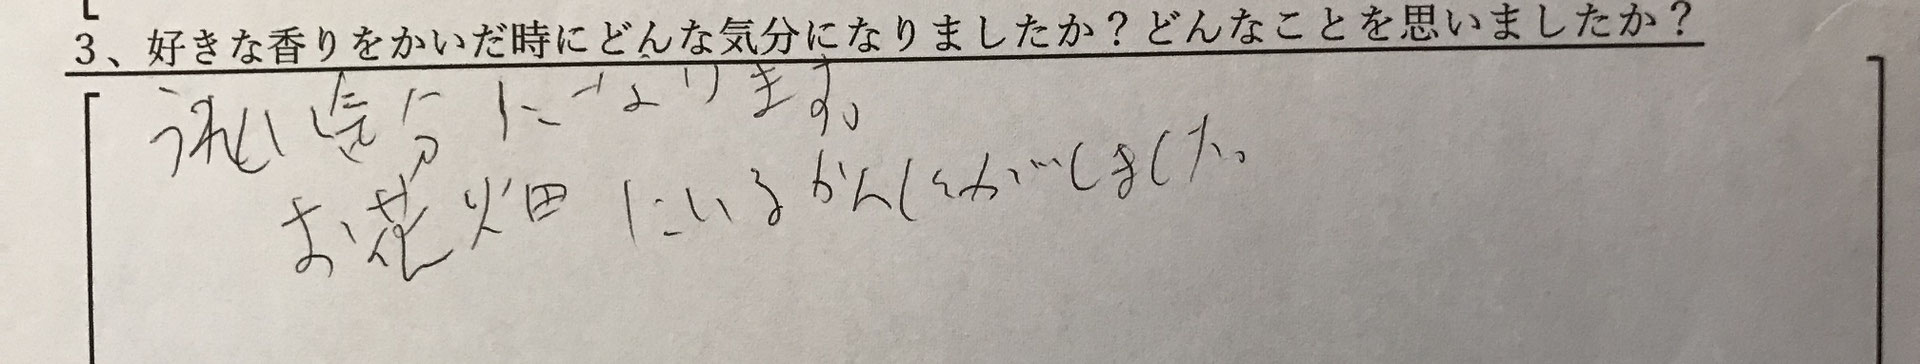 3、好きな香りをかいだ時にどんな気分になりましたか？どんなことを思いましたか？
うれしい気分になります。
お花畑にいるかんじがしました。